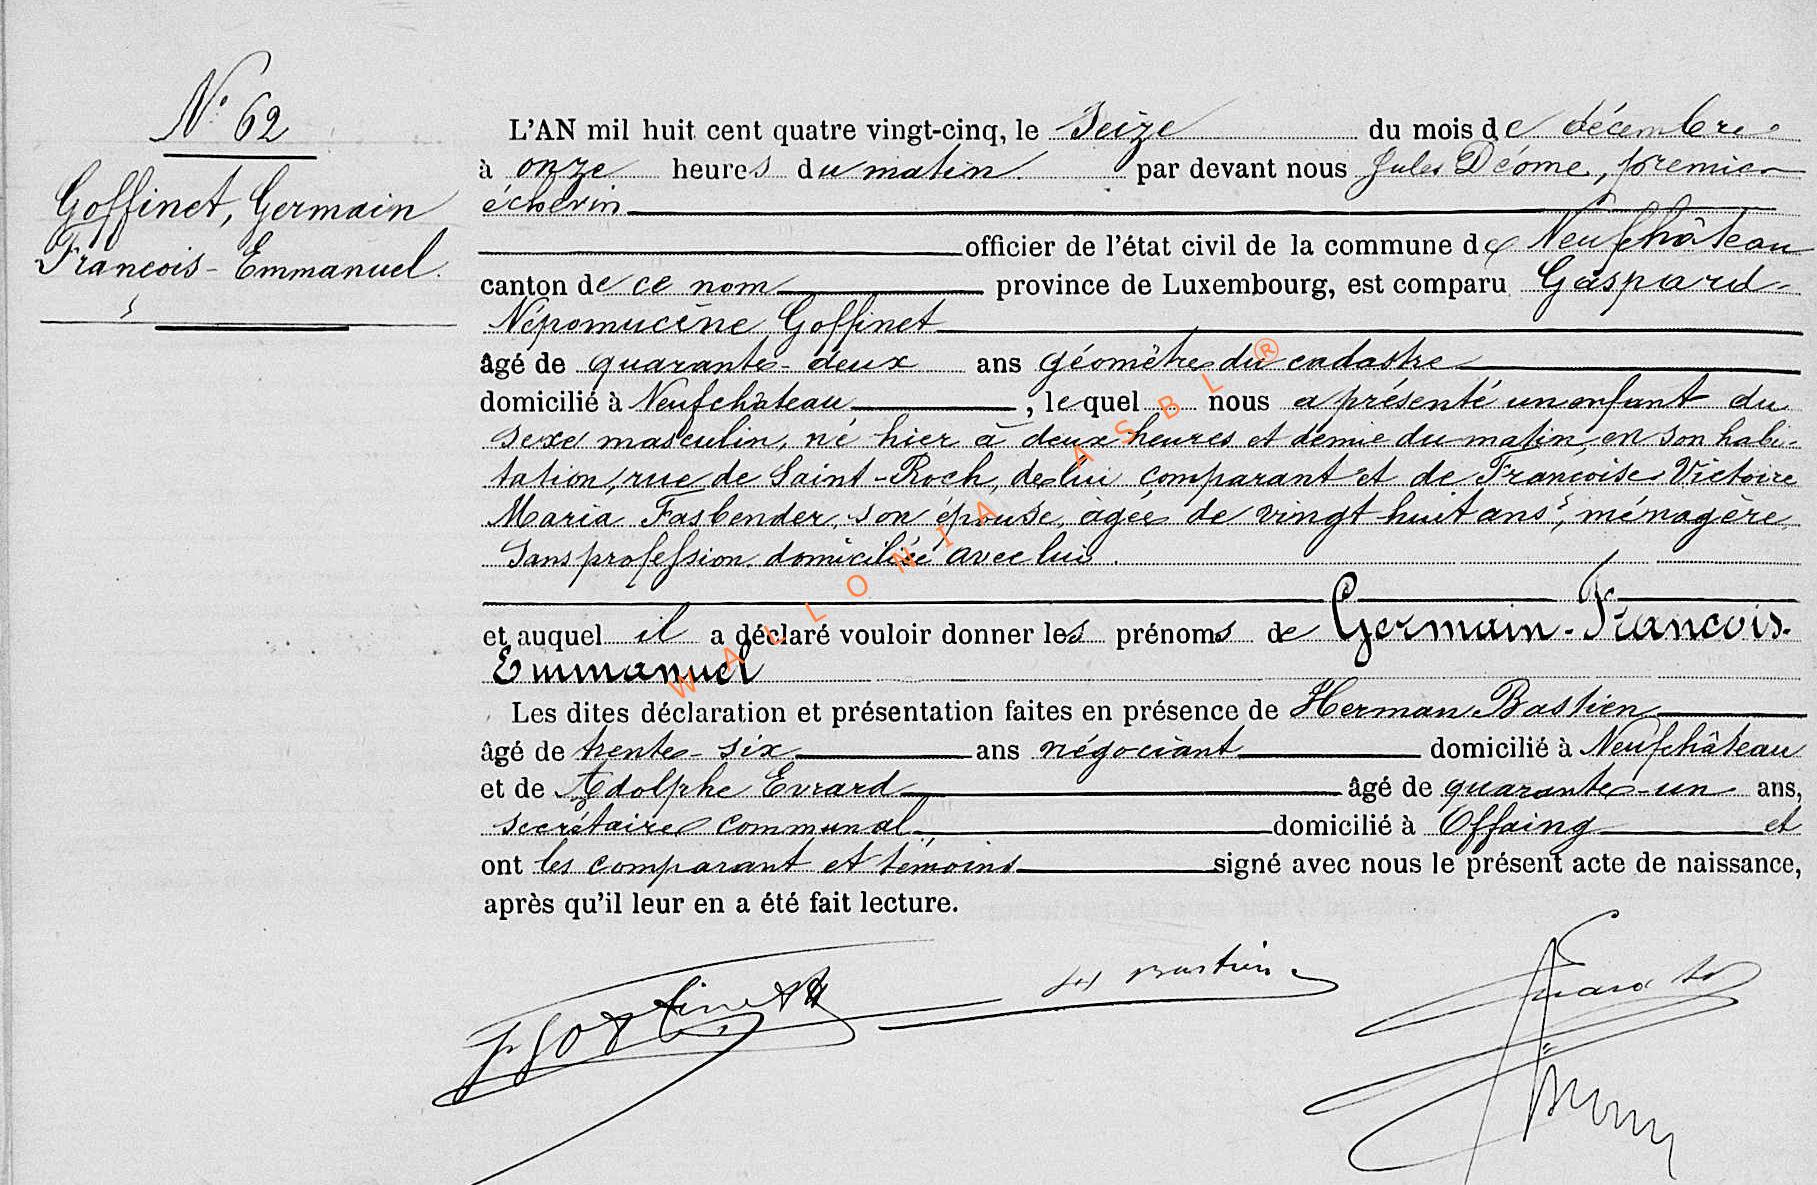 N° 62
Goffinet, Germain
François-Emmanuel.
L'AN mil huit cent quatre vingt-cinq, le Seize du mois de décembre
à onze heures du matin. par devant nous Jules Déome, premier
échevin
officier de l'état civil de la commune de Neufchâteau
canton de ce nom province de Luxembourg, est comparu Gaspard-
Népomucène Goffinet
âgé de quarante-deux ans géomètre du cadastre
domicilié à Neufchâteau, lequel nous a présenté un enfant du
sexe masculin, né hier à deux heures et demie du matin, en son habi-
tation, rue de Saint-Roch, de lui comparant et de Françoise Victoire
Maria Fasbender, son épouse, âgée de vingt huit ans, ménagère,
sans profession domiciliée avec lui.
et auquel il a déclaré vouloir donner les prénoms de Germain-François-
Emmanuel
Les dites déclaration et présentation faites en présence de Herman Bastien
âgé de trente-six ans négociant domicilié à Neufchâteau
et de Adolphe Evrard âgé de quarante-un ans,
secrétaire communal, domicilié à Offaing et
ont les comparant et témoins signé avec nous le présent acte de naissance,
après qu'il leur en a été fait lecture.
Goffinet H Bastien Evrard
WALLONIA ASBL ®